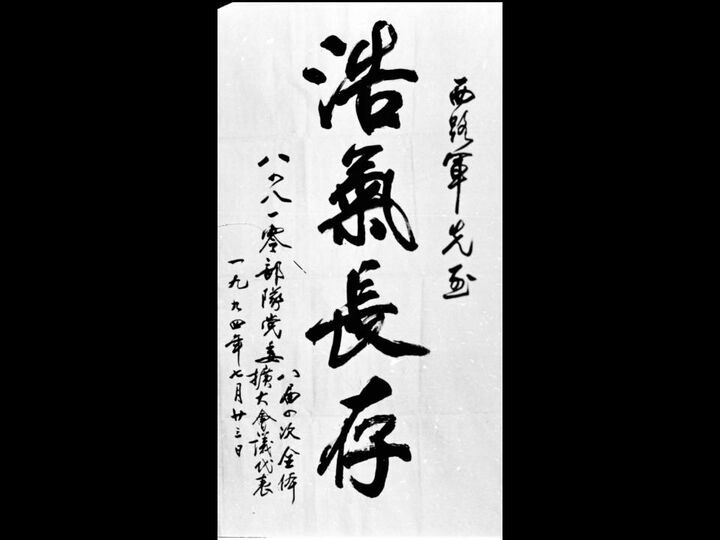 西路軍先烈
浩氣長存
八四八一零部隊党委
八届四次全体
擴大會議代表
一九九四年七月廿三日